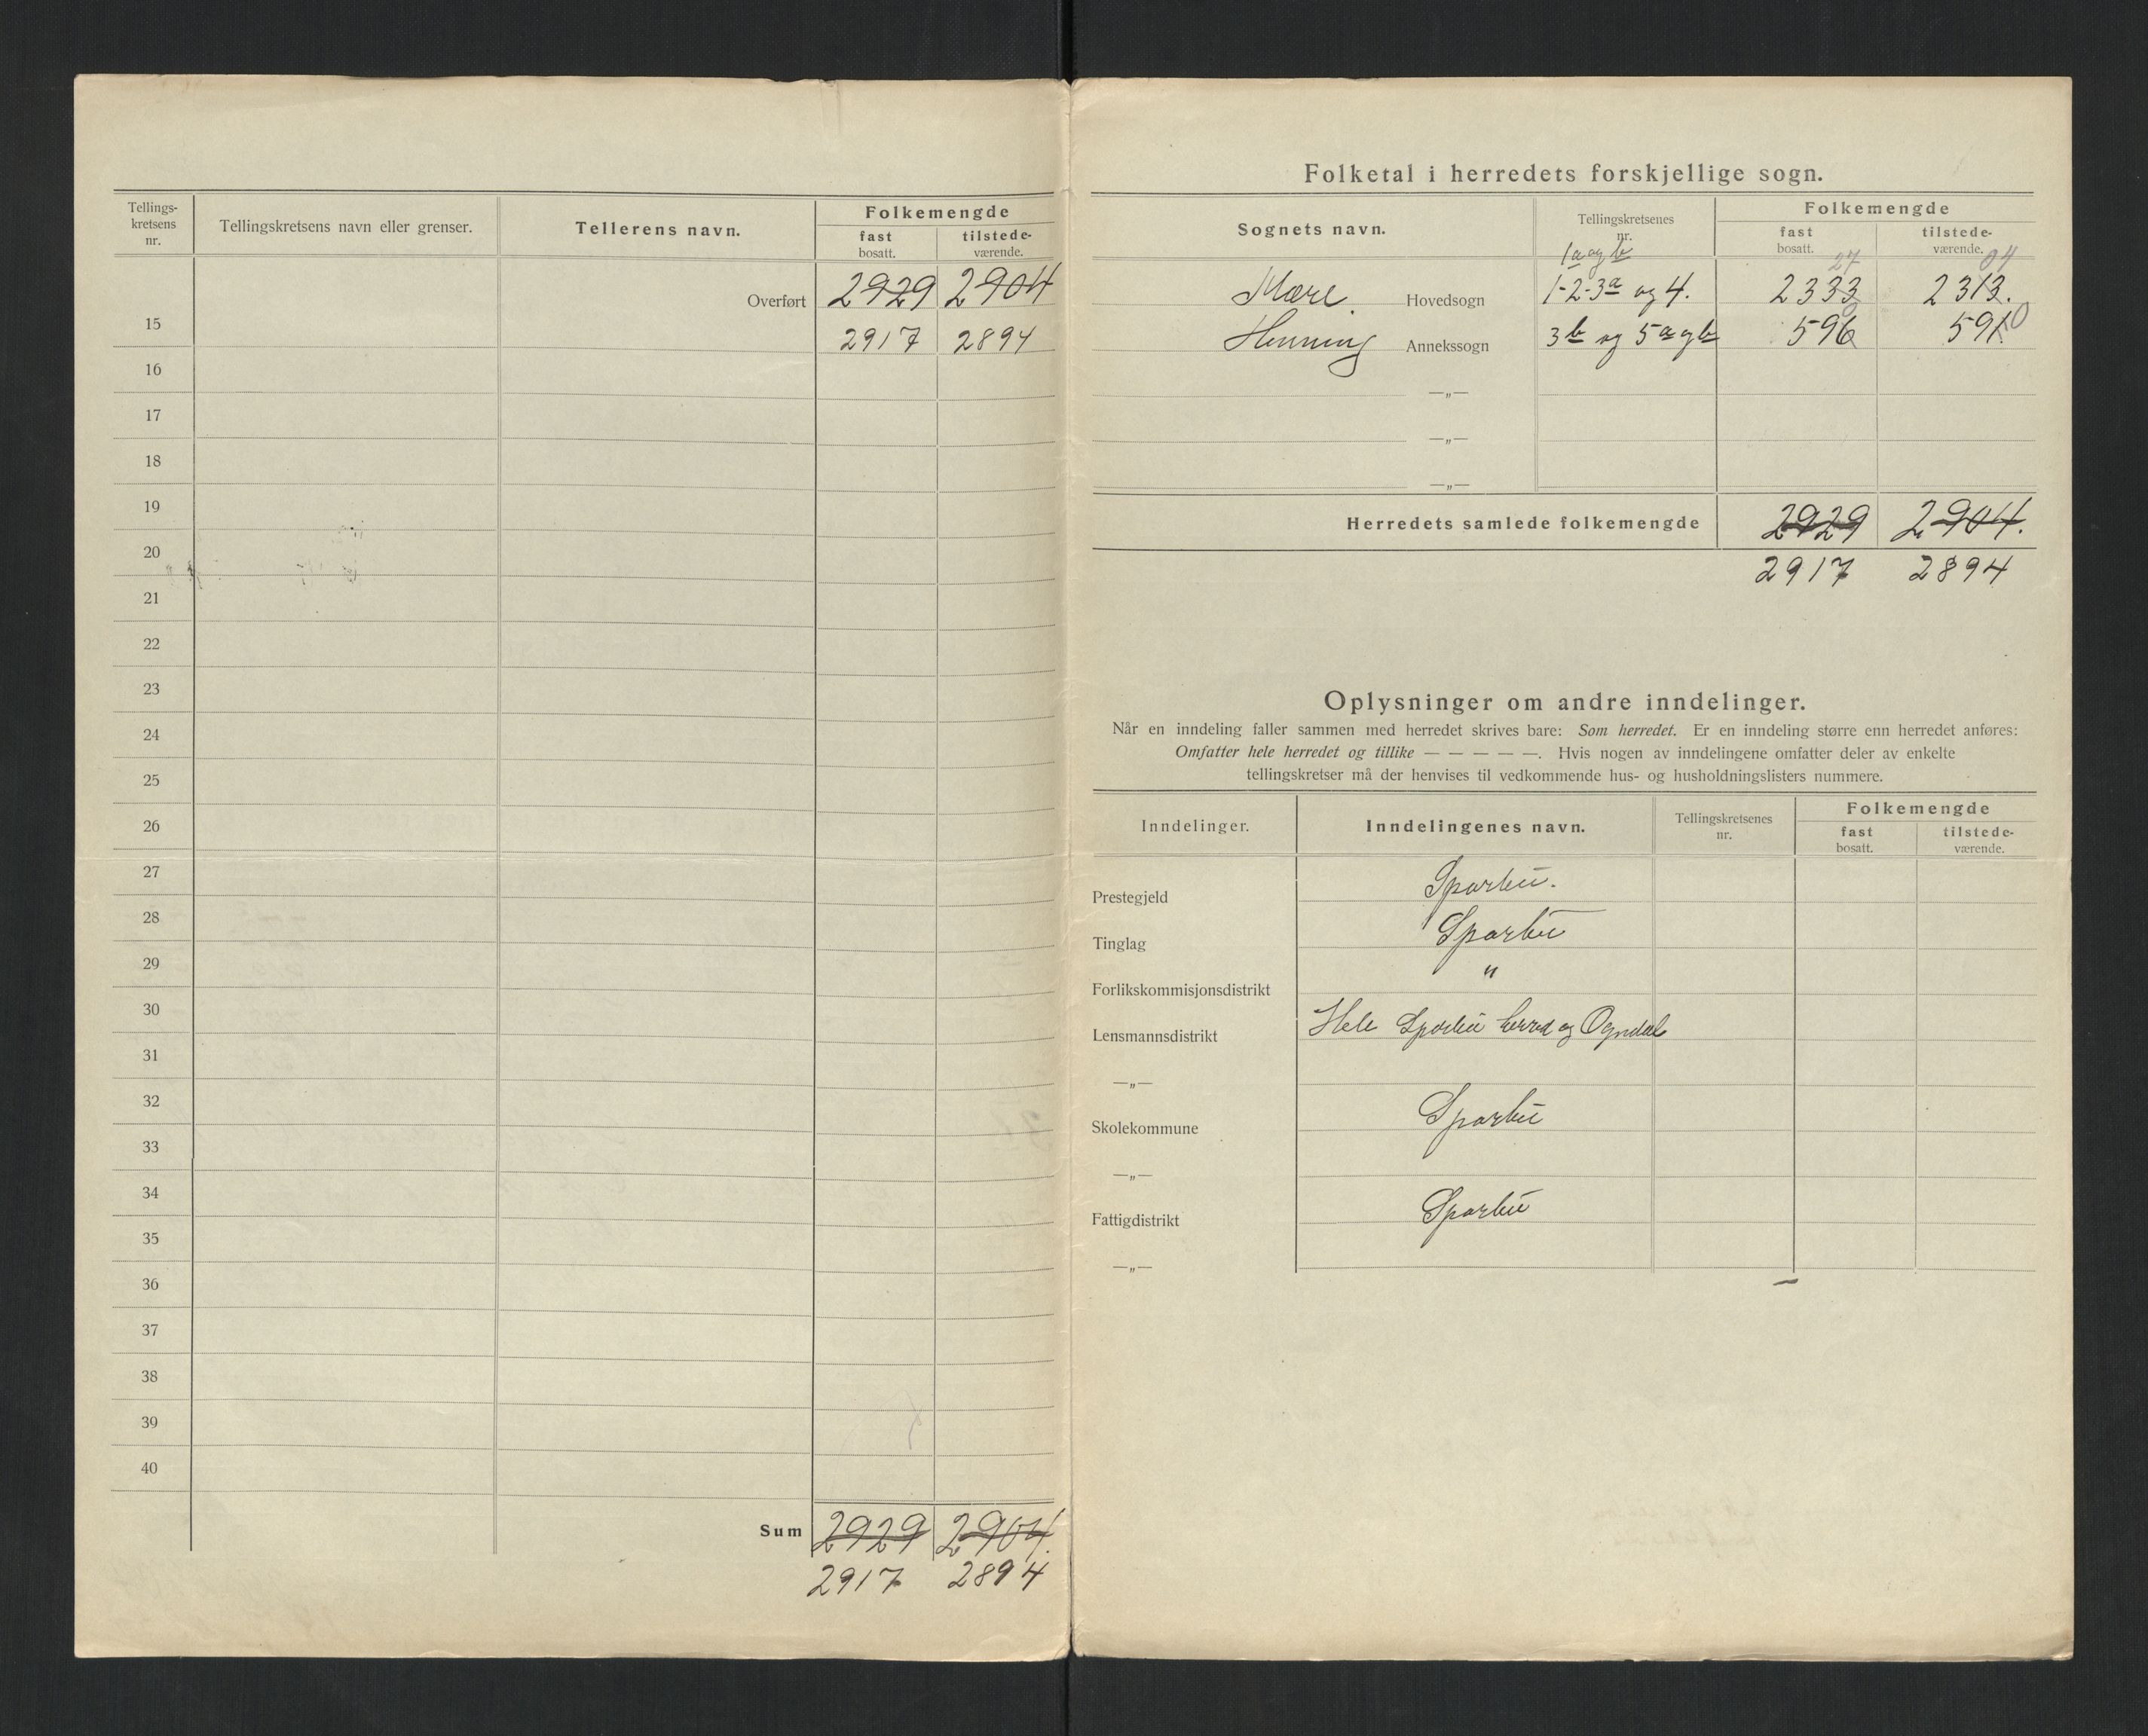 Tellings-
kretsens
nr.
Tellingskretsens navn eller grenser.
Tellerens navn.
Folkemengde
fast
bosatt.
tilstede-
værende.
Overført 2929 2904
15 2917 2894
16
17
18
19
20
21
22
23
24
25
26
27
28
29
30
31
32
33
34
35
36
37
38
39
40
Sum 2929 2904.
2917 2894
Folketal i herredets forskjellige sogn.
Sognets navn.
Tellingskretsenes
nr.
Folkemengde
fast
bosatt.
tilstede-
værende.
1a og b 27 04
Mære. Hovedsogn 1-2-3a og 4. 2333 2313.
0 0
Henning Annekssogn 3b og 5a og b 596 591
—„—
—„—
—„—
Herredets samlede folkemengde 2929 2904.
2917 2894
Oplysninger om andre inndelinger.
Når en inndeling faller sammen med herredet skrives bare: Som herredet. Er en inndeling større enn herredet anføres:
Omfatter hele herredet og tillike — — — — —. Hvis nogen av inndelingene omfatter deler av enkelte
tellingskretser må der henvises til vedkommende hus- og husholdningslisters nummere.
Inndelinger.
Inndelingenes navn.
Tellingskretsenes
nr.
Folkemengde
fast
bosatt.
tilstede-
værende.
Prestegjeld Sparbu.
Tinglag Sparbu
Forlikskommisjonsdistrikt "
Lensmannsdistrikt Hele Sparbu herred og Ogndal
—„—
Skolekommune Sparbu
—„—
Fattigdistrikt Sparbu
—„—